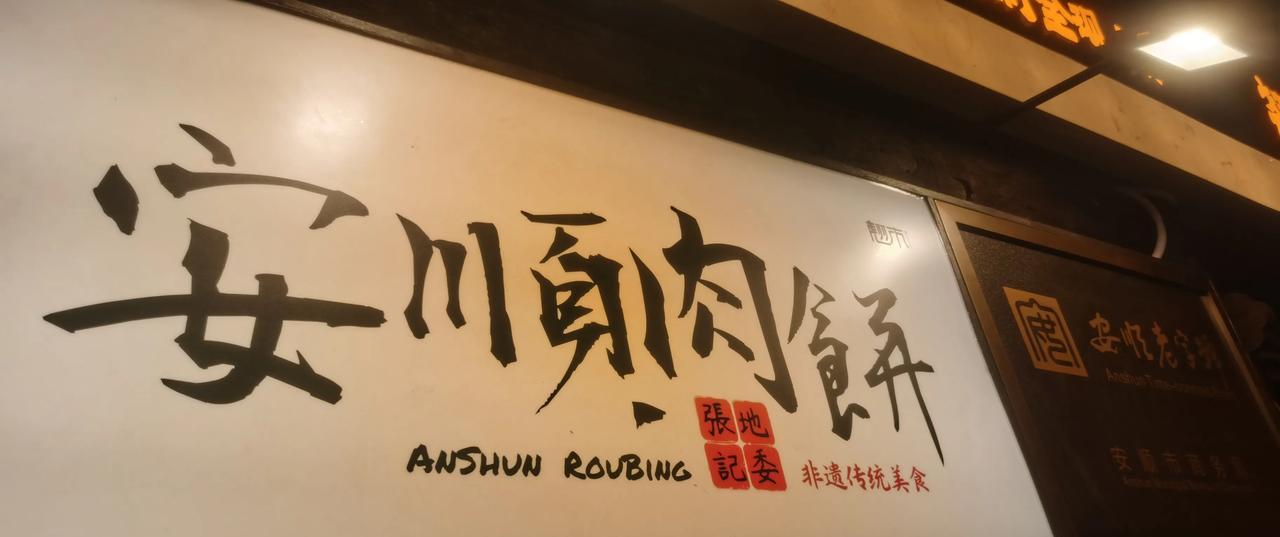 安順肉餅
ANSHUN ROUBING
張地
記委
非遗传统美食
安顺老字号
Anshun Time-honored
安顺市商务局